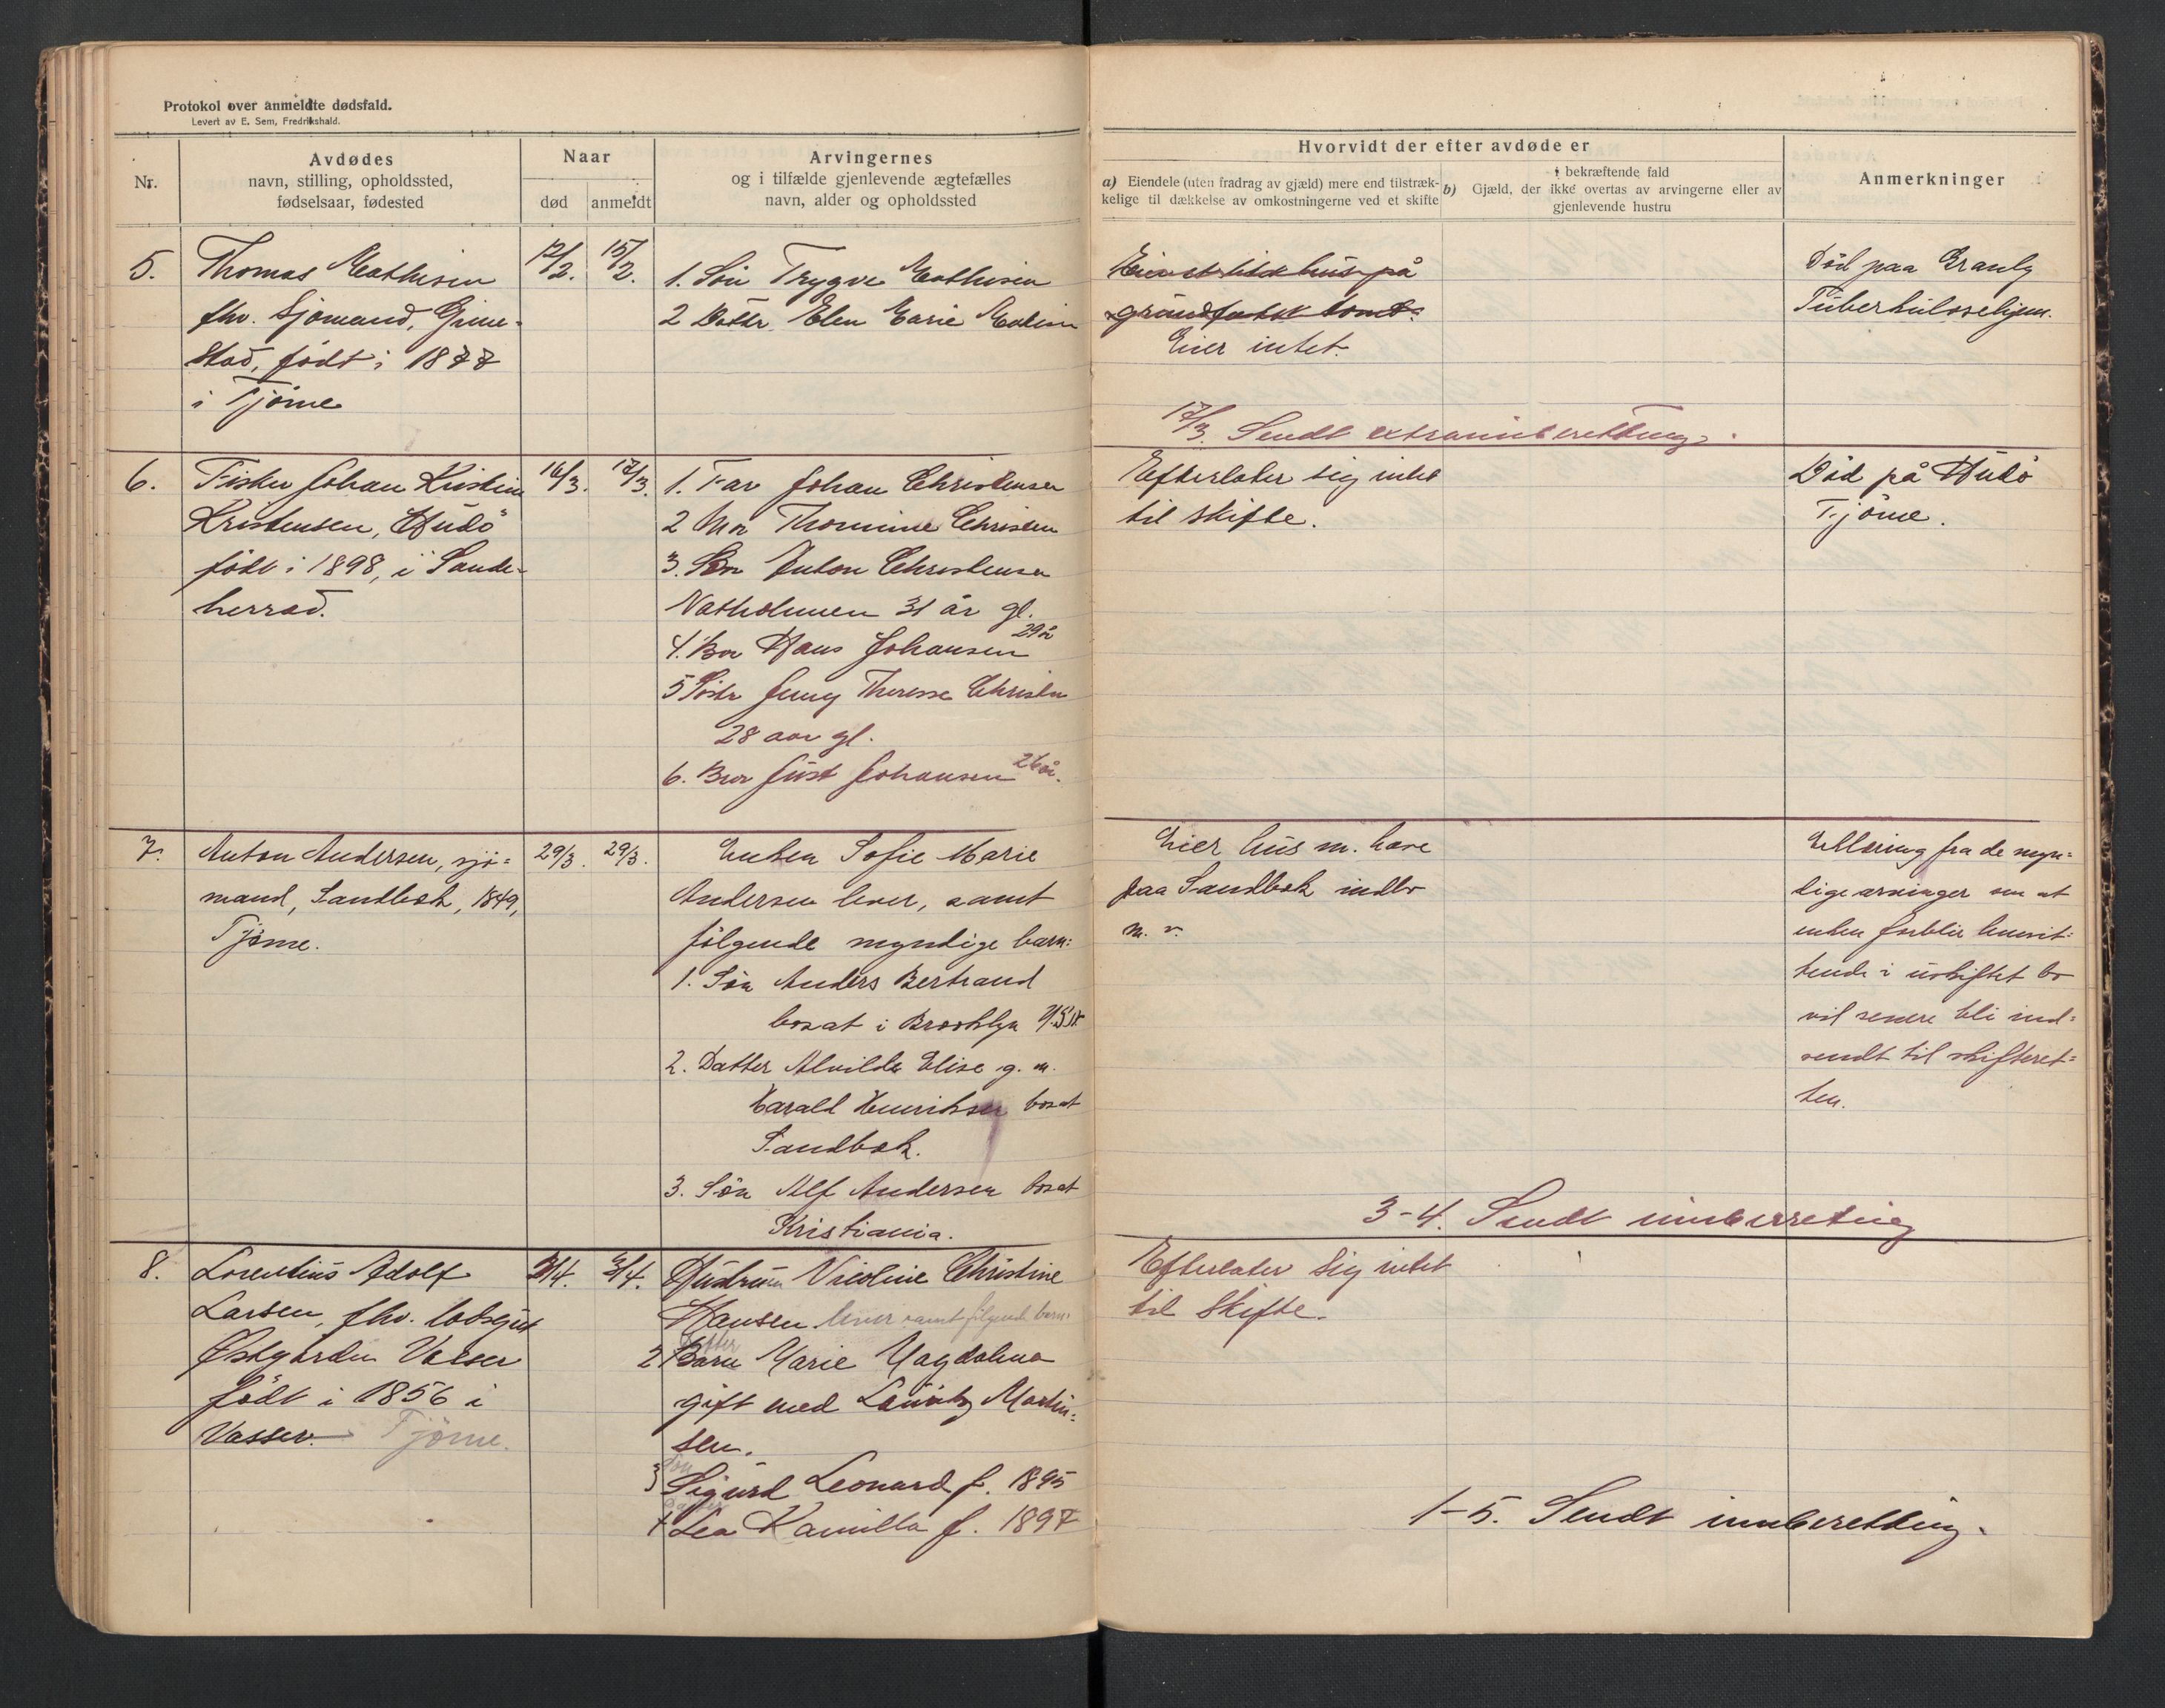 Protokol over anmeldte dødsfald.
Levert av E. Sem, Fredrikshald.
Nr.
Avdødes
navn, stilling, opholdssted,
fødselsaar, fødested
Naar
død
anmeldt
Arvingernes
og i tilfælde gjenlevende ægtefælles
navn, alder og opholdssted
Hvorvidt der efter avdøde er
a) Eiendele (uten fradrag av gjæld) mere end tilstræk-
kelige til dækkelse av omkostningerne ved et skifte
i bekræftende fald
b) Gjæld, der ikke overtas av arvingerne eller av
gjenlevende hustru
Anmerkninger
5.
Thomas Mathisen
fhv. Sjømand, Grime-
stad, født i 1877
i Tjøme
12/2.
15/2.
1. Søn Trygve Mathisen
2 Datter Elen Marie
hus på
Eier intet.
Død paa Granly
Tuberkulosehjem.
17/3. Sendt extrainnberetting.
6.
Fisker Johan Kristian
Kristensen, Hudø
født i 1898, i Sande-
herred.
16/3.
17/3.
1. Far Johan Christensen
2 Mor Thomine Christen
3. Bror Anton Christensen
Natholmen 31 år gl.
4. Bror Hans Johansen 29 år
5 Søster Jenny Therese Christen
28 aar gl.
6. Bror Just Johansen 26 år.
Efterlater sig intet
til skifte.
Død på Hudø
Tjöme.
7.
Anton Andersen, sjø=
mand, Sandbæk, 1849,
Tjøme.
29/3.
29/3.
Enken Sofie Marie
Andersen lever, samt
følgende myndige barn:
1. Søn Anders Bertrand
bosat i Brooklyn U.S.A.
2. Datter Alvilde Elise g. m.
Harald Henriksen bosat
Sandbæk.
3. Søn Alf Andersen bosat
Kristiania.
Eier hus m. have
paa Sandbæk indbo
m. v.
Erklæring fra de myn=
dige arvinger om at
enken forblir hensit=
tende i uskiftet bo
vil senere bli ind=
sendt til skifteret=
ten.
3-4. Sendt innberetting
8.
Lorentius Adolf
Larsen, fhv. losgut
Østgården Vasser
født i 1856 i
Vasser. Tjøme.
2/4.
Hustruen Nicoline Christine
Hansen lever samt følgende barn:
Datter
2 Barn Marie Magdalena
gift med Lauritz Martin=
sen.
Søn
3 Sigurd Leonard f. 1895
Datter
4 Lea Kamilla f. 1897
Efterlater sig intet
til Skifte.
1-5. Sendt innberetting.